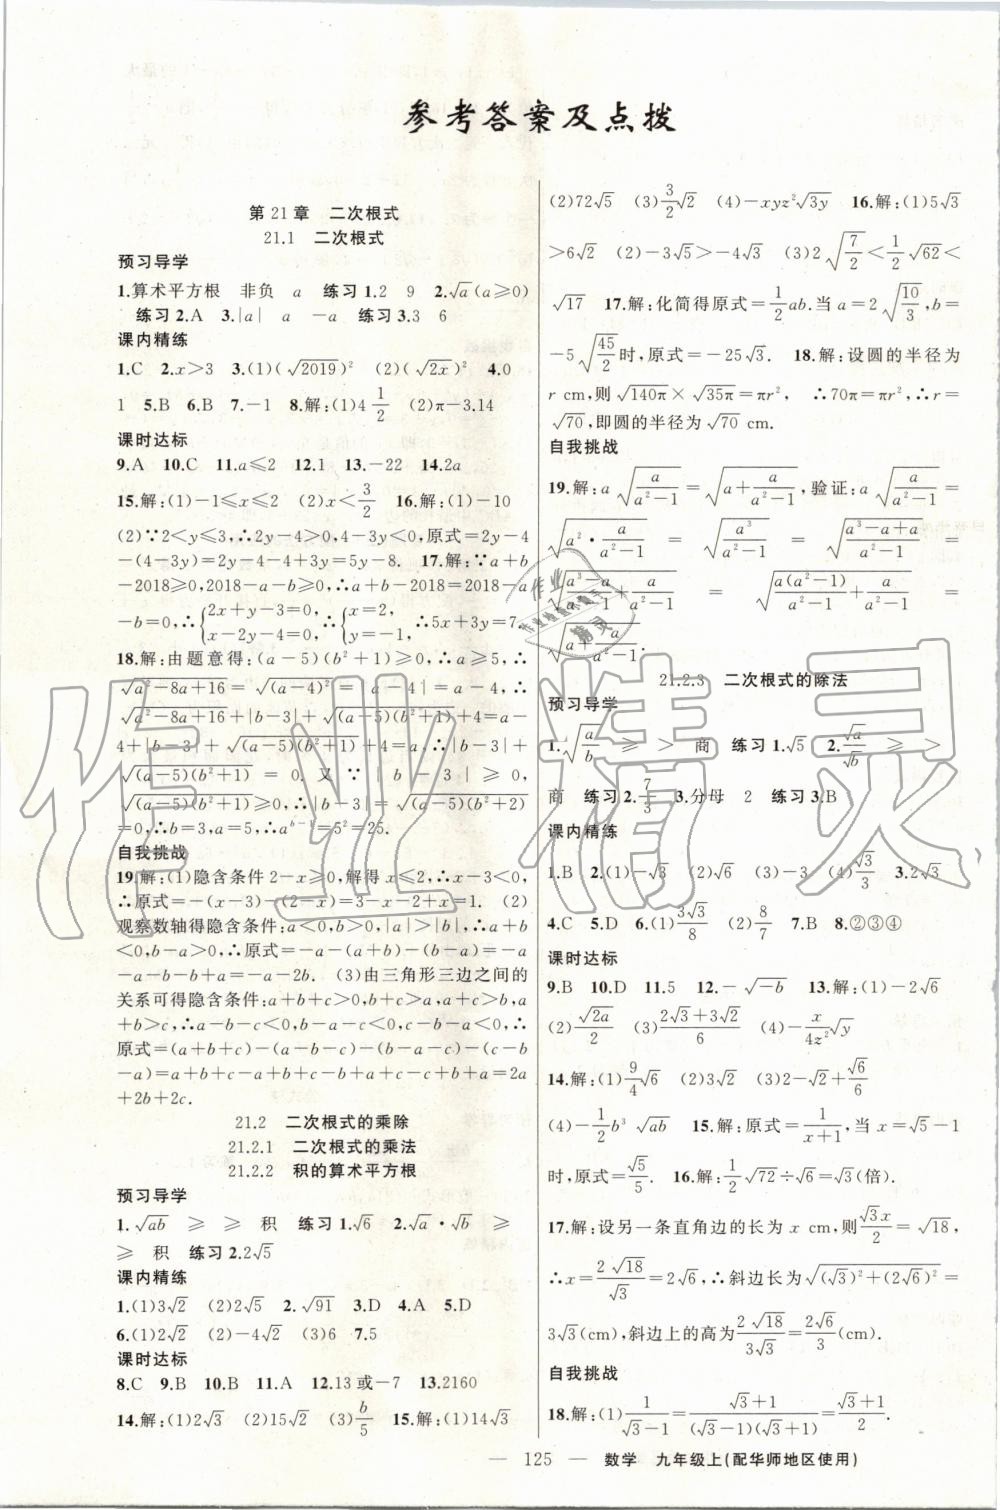 参考答案及点拨
第21章 二次根式
21.1 二次根式
预习导学
1.算术平方根 非负 a 练习1.2 9 2.√a(a≥0)
练习2.A 3.|a| a －a 练习3.3 6
课内精练
1.C 2.x>3 3.(1)(√2019)² (2)(√2x)² 4.0
1 5.B 6.B 7.－1 8.解:(1)4 1/2 (2)π－3.14
课时达标
9.A 10.C 11.a≤2 12.1 13.－22 14.2a
15.解:(1)－1≤x≤2 (2)x<3/2 16.解:(1)－10
(2)∵2<y≤3,∴2y－4>0,4－3y<0,原式=2y－4
－(4－3y)=2y－4－4+3y=5y－8. 17.解:∵a+b
－2018≥0,2018－a－b≥0,∴a+b－2018=2018－a
－b=0,∴{2x+y－3=0, x－2y－4=0,∴{x=2, y=－1,∴5x+3y=7.
18.解:由题意得:(a－5)(b²+1)≥0,∴a≥5,∴
√(a²－8a+16)=√(a－4)²=|a－4|=a－4,∴
√(a²－8a+16)+|b－3|+√((a－5)(b²+1))=a－
4+|b－3|+√((a－5)(b²+1))=a－4,∴|b－3|+
√((a－5)(b²+1))=0.又∵|b－3|≥0,
√((a－5)(b²+1))≥0,∴|b－3|=√((a－5)(b²+2))
=0,∴b=3,a=5,∴a^(b－1)=5²=25.
自我挑战
19.解:(1)隐含条件2－x≥0,解得x≤2,∴x－3<0,
∴原式=－(x－3)－(2－x)=3－x－2+x=1. (2)
观察数轴得隐含条件:a<0,b>0,|a|>|b|,∴a+b
<0,b－a>0,∴原式=－a－(a+b)－(b－a)=－a－
a－b－b+a=－a－2b. (3)由三角形三边之间的
关系可得隐含条件:a+b+c>0,b+c>a,a+c>b,a
+b>c,∴a－b－c<0,b－a－c<0,c－b－a<0,∴
原式=(a+b+c)－(a－b－c)－(b－a－c)－(c－b
－a)=a+b+c－a+b+c－b+a+c－c+b+a=2a
+2b+2c.
21.2 二次根式的乘除
21.2.1 二次根式的乘法
21.2.2 积的算术平方根
预习导学
1.√ab ≥ ≥ 积 练习1.√6 2.√a·√b ≥
≥ 积 练习2.2√5
课内精练
1.(1)3√2 (2)2√5 2.√91 3.D 4.A 5.D
6.(1)2√2 (2)－4√2 (3)6 7.5
课时达标
8.C 9.B 10.B 11.A 12.13或－7 13.2160
14.解:(1)2√3 (2)15√2 (3)b/5 15.解:(1)14√3
(2)72√5 (3)3/2√2 (4)－xyz²√3y 16.解:(1)5√3
>6√2 (2)－3√5>－4√3 (3)2√(7/2)<1/2√62<
√17 17.解:化简得原式=1/2ab.当a=2√(10/3),b=
－5√(45/2)时,原式=－25√3. 18.解:设圆的半径为
r cm,则√140π×√35π=πr², ∴70π=πr²,∴r=
√70,即圆的半径为√70 cm.
自我挑战
19.解:a√(a/(a²－1))=√(a+a/(a²－1)),验证:a√(a/(a²－1))=
√(a²·a/(a²－1))=√(a³/(a²－1))=√((a³－a+a)/(a²－1))=
√((a³－a)/(a²－1)+a/(a²－1))=√(a(a²－1)/(a²－1)+a/(a²－1))=
√(a+a/(a²－1)).
21.2.3 二次根式的除法
预习导学
1.√(a/b) ≥ > 商 练习1.√5 2.√a/√b ≥ >
商 练习2.7/3 3.分母 2 练习3.B
课内精练
1.B 2.(1)－√3 (2)2√6 (3)－3 (4)√3/3 3.2√3
4.C 5.D 6.(1)3√3/8 (2)8/7 7.B 8.②③④
课时达标
9.B 10.D 11.5 12.－√－b 13.解:(1)－2√6
(2)√2a/2 (3)(2√3+3√2)/6 (4)－x/4z²√y
14.解:(1)9/4√6 (2)3√3 (3)2－√6/6
(4)－1/2b³√ab 15.解:原式=1/(x+1),当x=√5－1
时,原式=√5/5. 16.解:1/2√72÷√6=√3(倍).
17.解:设另一条直角边的长为x cm,则√3x/2=√18,
∴x=2√18/√3=2√6,∴斜边长为√((√3)²+(2√6)²)=
3√3(cm),斜边上的高为2√18/3√3=2√6/3(cm).
自我挑战
18.解:(1)1/(√3－1)=(√3+1)/((√3－1)(√3+1))=(√3+1)/2.
— 125 — 数学 九年级上(配华师地区使用)
作业精灵